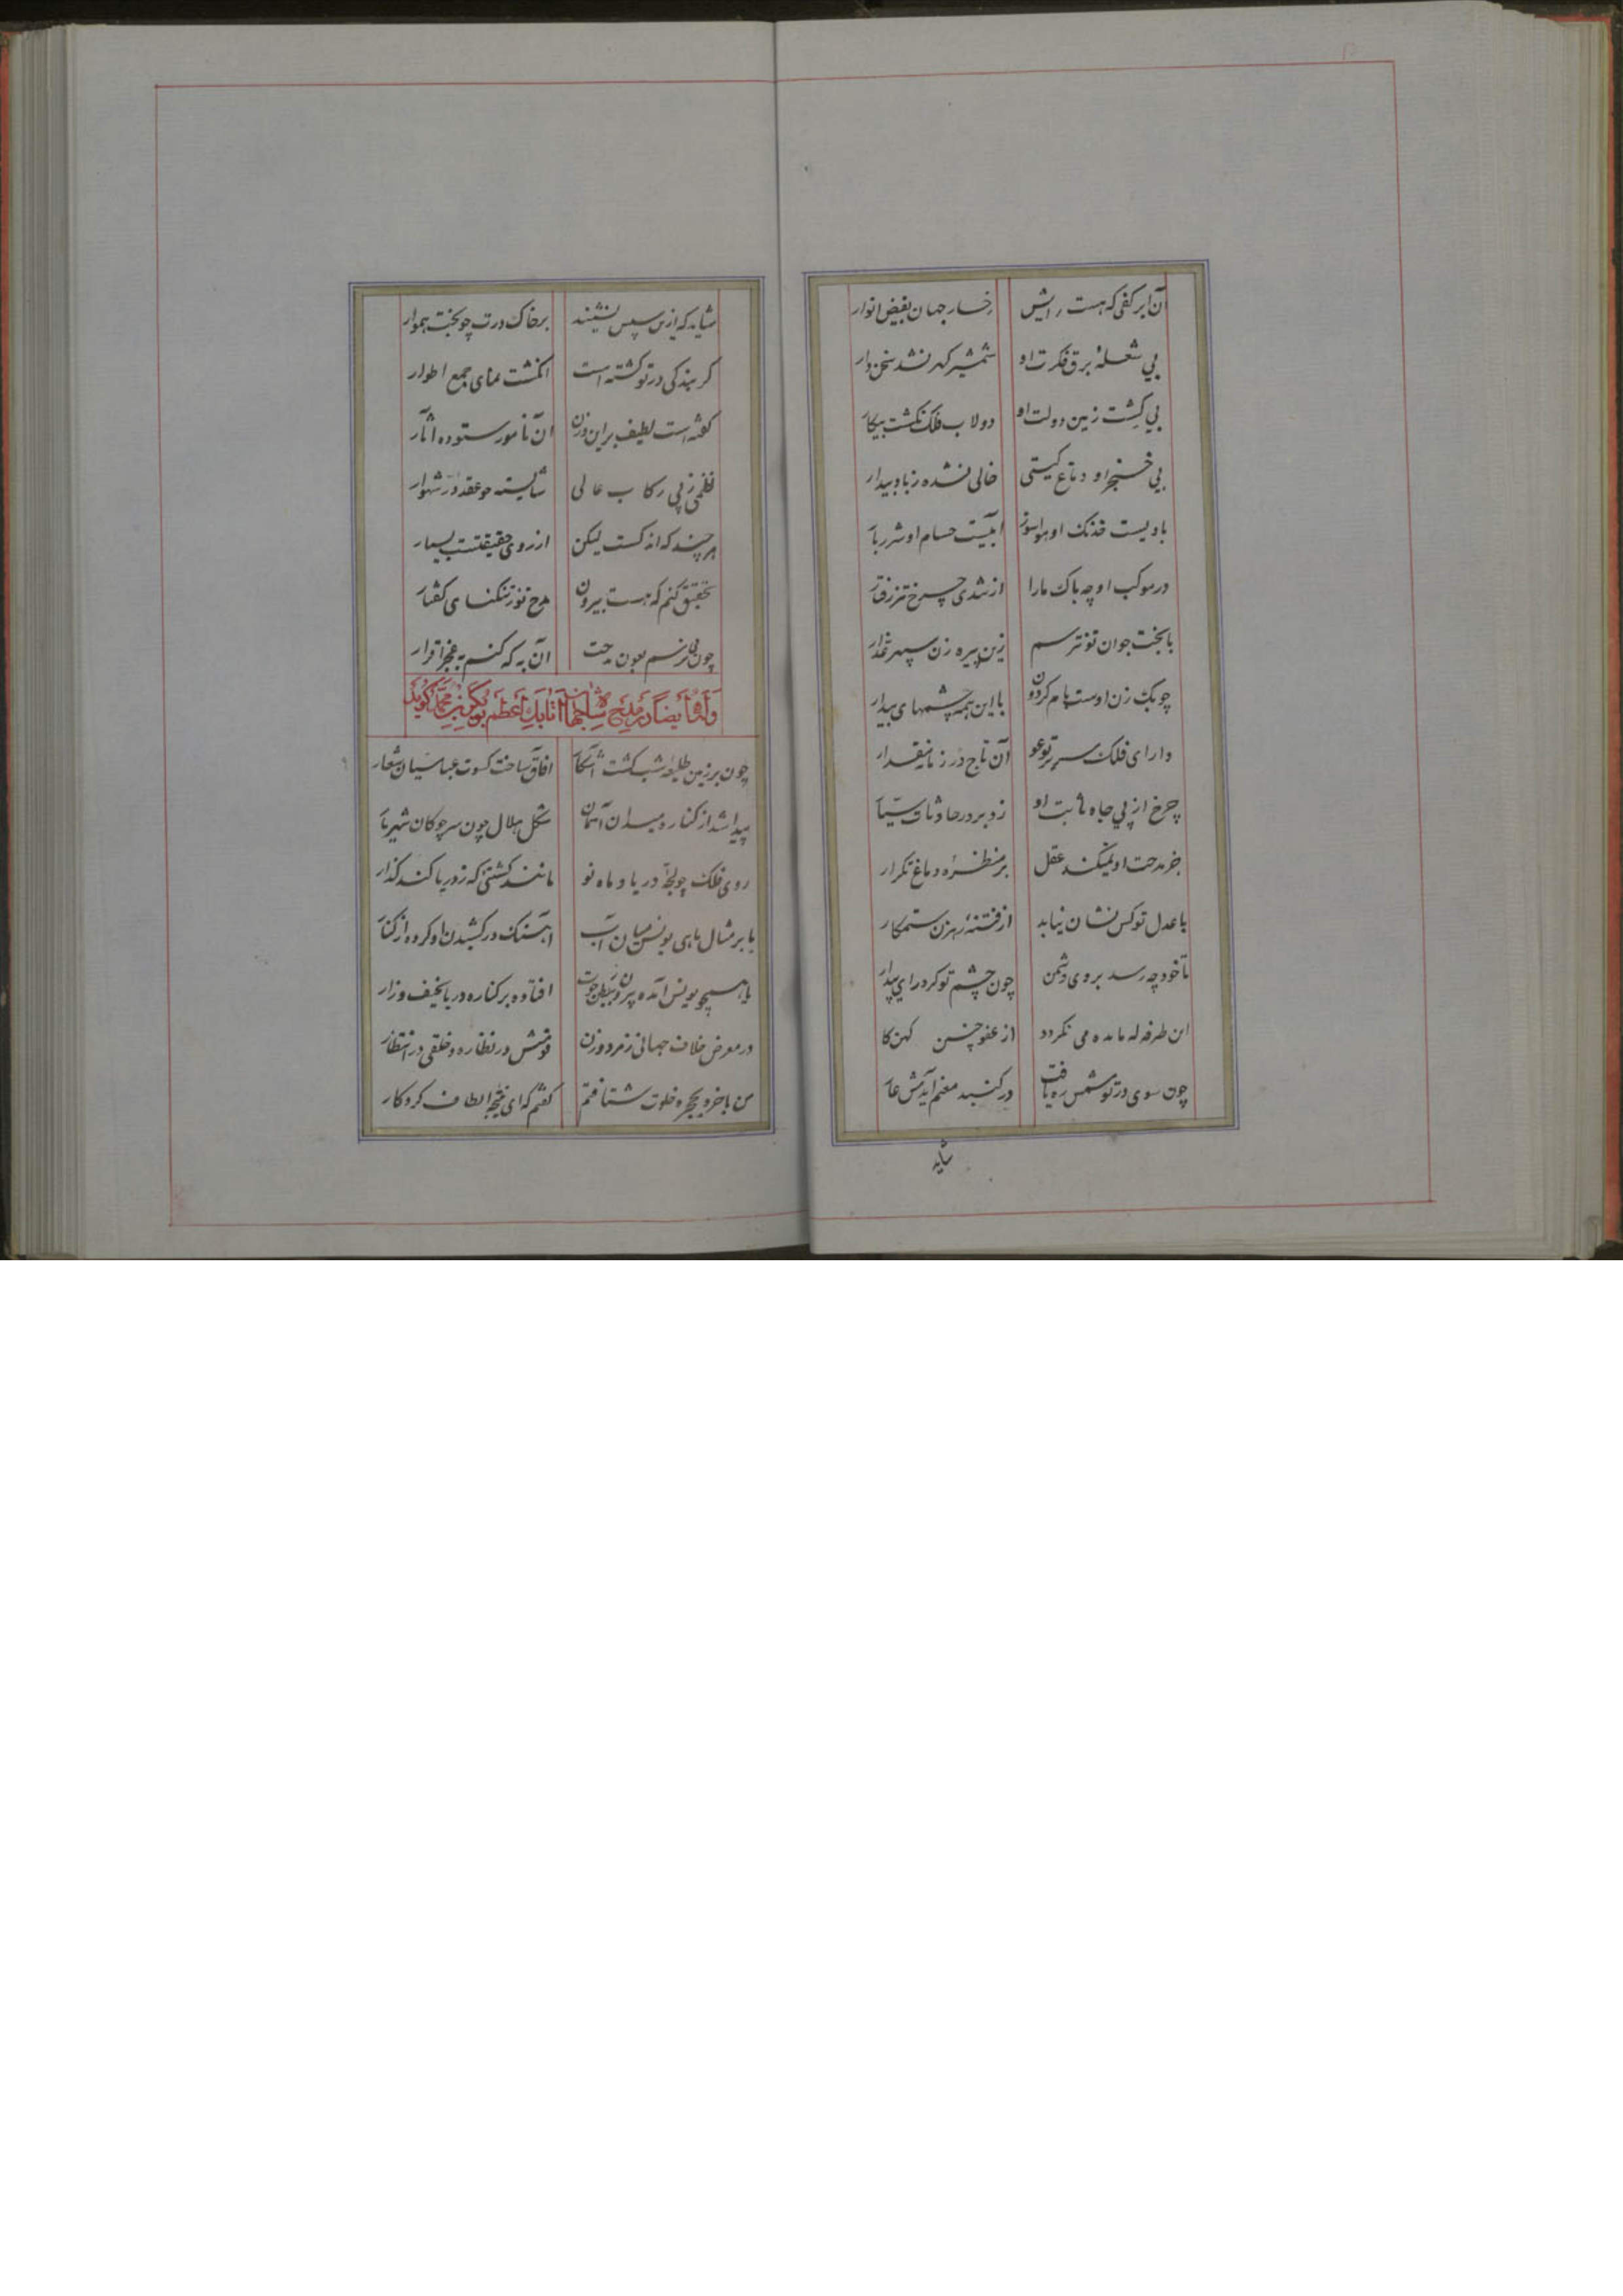 آن ابر کفی که هست رایش رخسار جهان بفیض انوار
بی شعلهٔ برق فکرت او شمشیر گهر نشد سخن‌دار
بی کشت زمین دولت او دولاب فلک نگشت بیکار
بی خنجر او دماغ گیتی خالی نشده ز باد پیدار
بادیست خدنک او هواسوز آبیست حسام او شرربار
در موکب او چه باک ما را از تندی چرخ تیز رفتار
با بخت جوان تو نترسم زین پیره زن سپهر غدار
چوبک زن اوست بام گردون با این همه چشمهای بیدار
دارای فلک سریر تو عو آن تاج در زمانه
چرخ از پی جاه ثابت او زد بر در حادثات
جز مدحت او نمیکند عقل بر منظره دماغ تکرار
با عدل تو کس نشان نیابد از فتنهٔ رهزن ستمکار
تا خود چه رسد بروی دشمن چون چشم تو کرد رای پیدار
این طرفه که مانده می نکردد از عفو چنین
چون سوی در تو شمس ره یافت در گنبد هفتم آیدش عار
شاید
شاید که ازین سپس نشیند بر خاک درت چو بخت هموار
کز بندکی در تو گشته است انکشت نمای جمع اطوار
گفته است لطیف بر این وزن آن نامور ستوده آثار
نظمی ز پی رکاب عالی شایسته چو عقد در شهوار
هر چند که اندکست لیکن از روی حقیقتست بسیار
تحقیق کنم که هست بیرون مدح تو ز تنکنای گفتار
چون می نرسم بعون مدحت آن به که کنم به عجز اقرار
وله ایضا در مدح شاه جهان اتابک اعظم بوبکر بن محمد گوید
چون بر زمین طلیعه شب گشت آشکار آفاق ساخت کسوت عباسیان شعار
پیدا شد از کناره میدان آسمان شکل هلال چون سر چوکان شهریار
روی فلک چو لجه دریا و ماه نو مانند کشتیی که ز دریا کند گذار
یا بر مثال ماهی یونس میان آب آهنک در کشیدن او کرده از کنار
یا همچو یونس آمده بیرون ز بطن حوت افتاده بر کناره دریا نحیف و زار
در معرض خلاف جهانی ز مرد و زن قومش در نظاره و خلقی در انتظار
من با خرد بحجره خلوت شتافتم گفتم که ای نتیجه الطاف کردکار